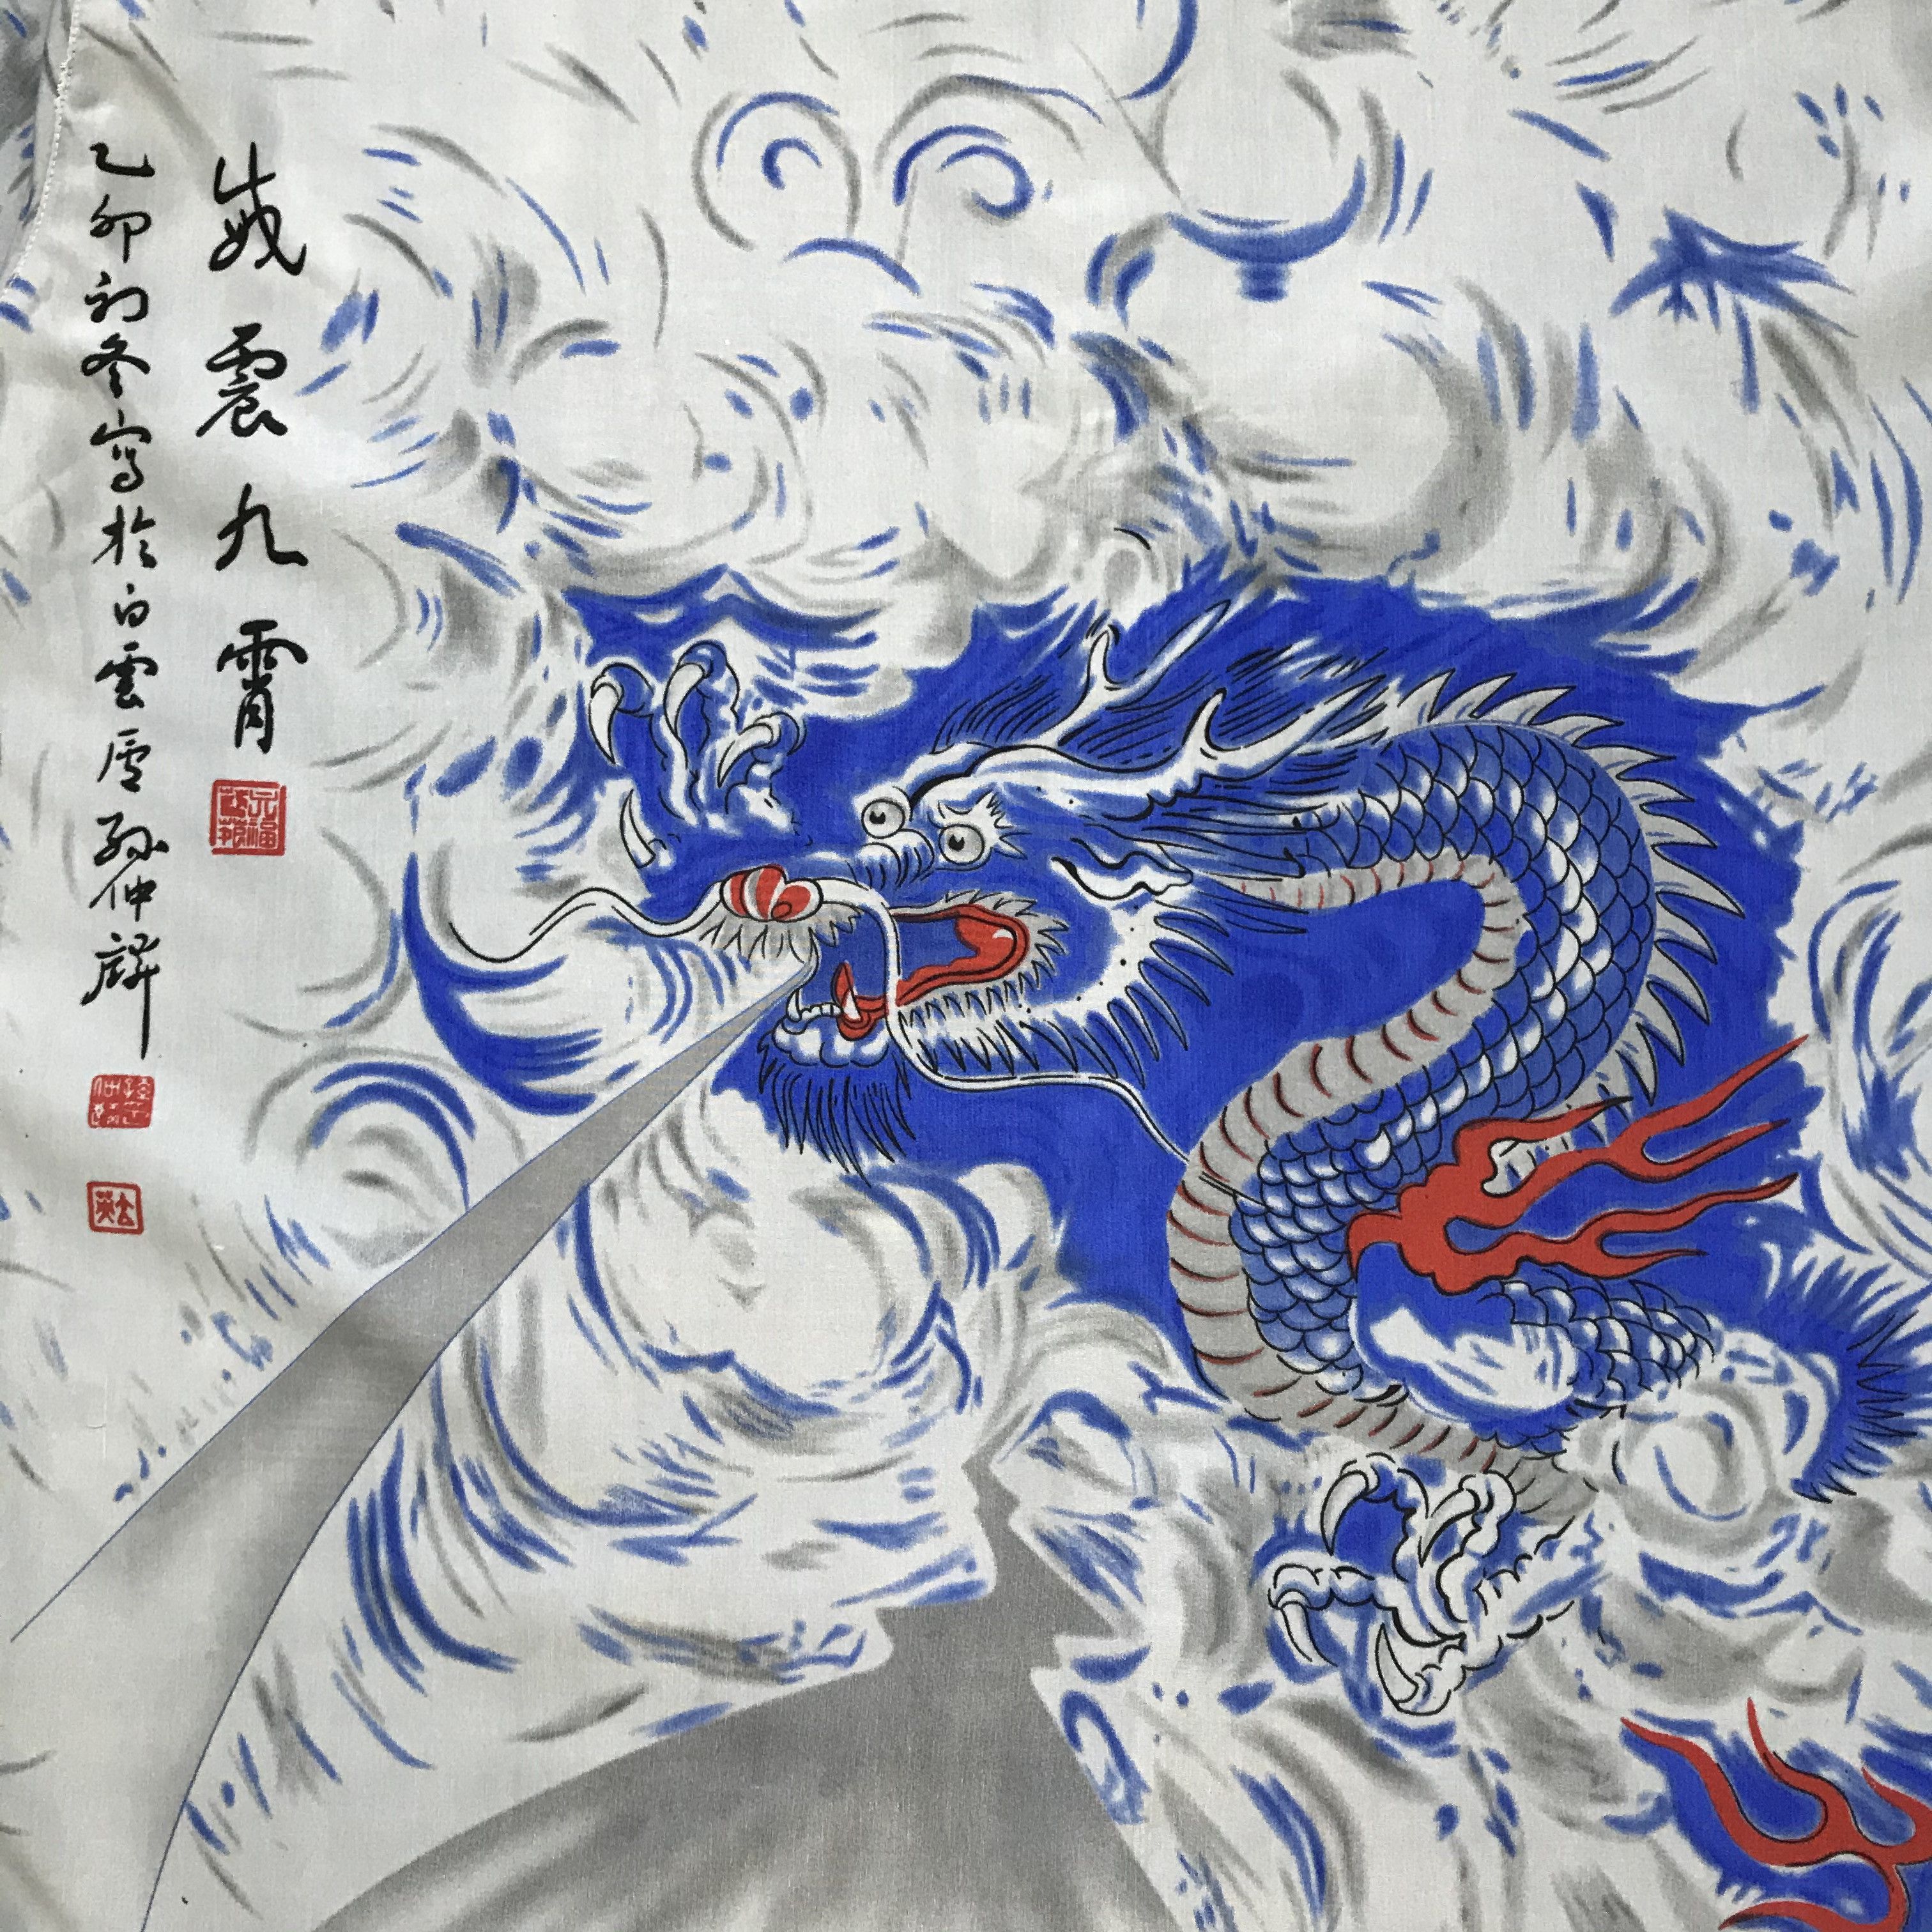 威震九霄
乙卯初冬寫於白雲廬孫仲麟